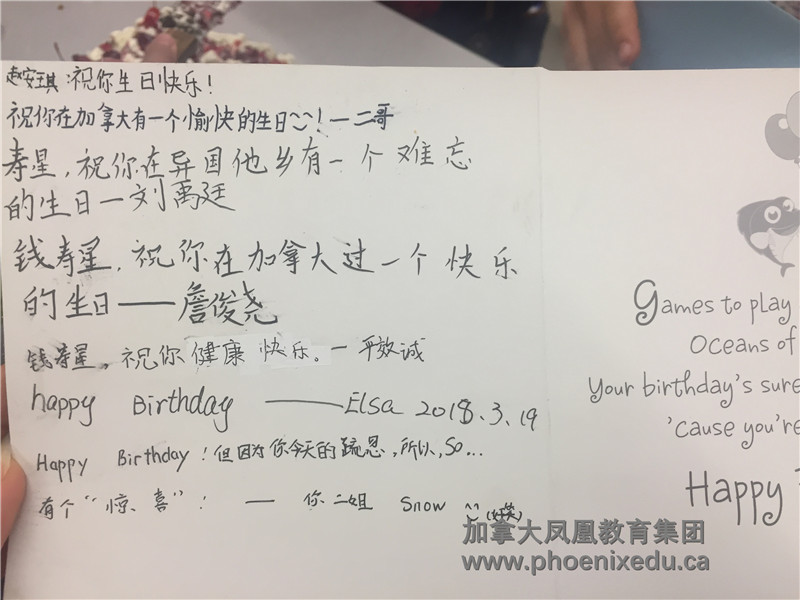 赵安琪:祝你生日快乐!
祝你在加拿大有一个愉快的生日~!一二哥
寿星,祝你在异国他乡有一个难忘
的生日一刘禹廷
钱寿星,祝你在加拿大过一个快乐
的生日——詹俊尧
钱寿星,祝你健康快乐。一平效诚
happy Birthday ——Elsa 2018.3.19
Happy Birthday!但因为你今天的疏忽,所以,So...
有个“惊、喜”! — 你二姐 Snow
Games to play
Oceans of
Your birthday's sure
'cause you're
Happy
加拿大凤凰教育集团
www.phoenixedu.ca